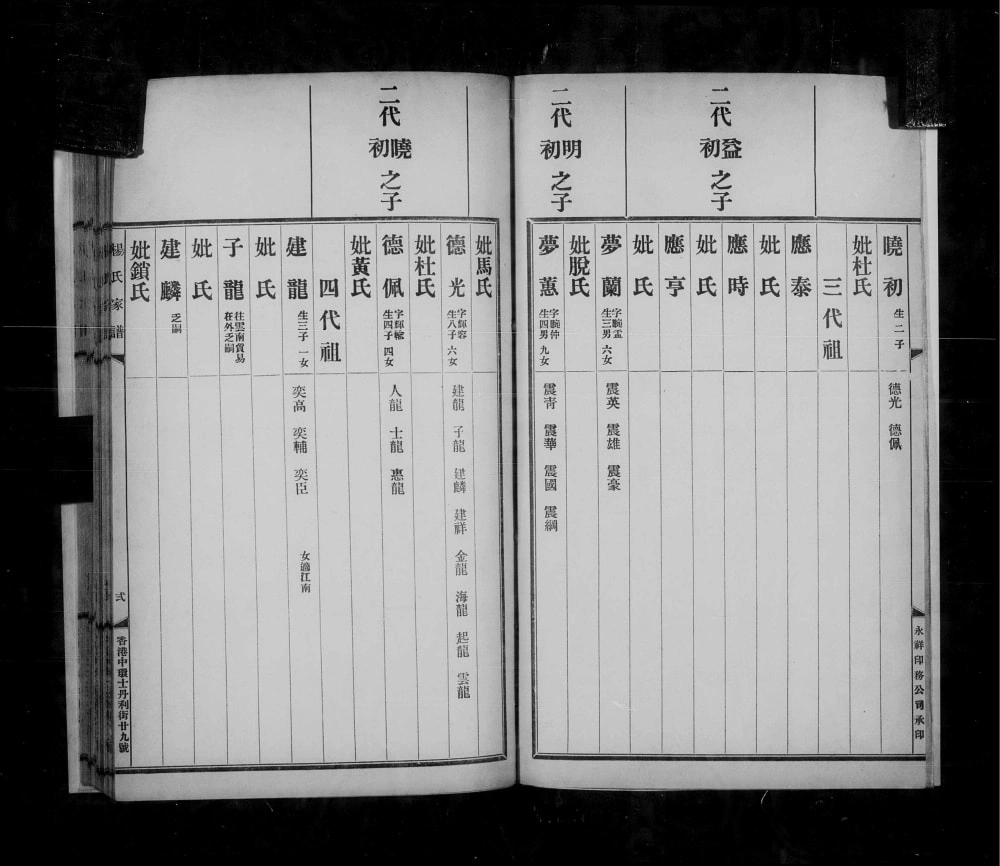 曉初 生二子 德光 德佩
妣杜氏
三代祖
二代益初之子
應泰
妣氏
應時
妣氏
應亨
妣氏
二代明初之子
夢蘭 字畹盂 生三男 六女 震英 震雄 震豪
妣脫氏
夢蕙 字畹仲 生四男 九女 震青 震華 震國 震綱
永祥印務公司承印
妣馬氏
二代曉初之子
德光 字輝容 生八子 六女 建龍 子龍 建麟 建祥 金龍 海龍 起龍 雲龍
妣杜氏
德佩 字輝瑜 生四子 四女 人龍 士龍 惠龍
妣黃氏
四代祖
建龍 生三子 一女 奕高 奕輔 奕臣 女適江南
妣氏
子龍 往雲南貿易 在外乏嗣
妣氏
建麟 乏嗣
妣鎖氏
楊氏家譜
弍
香港中環士丹利街廿九號